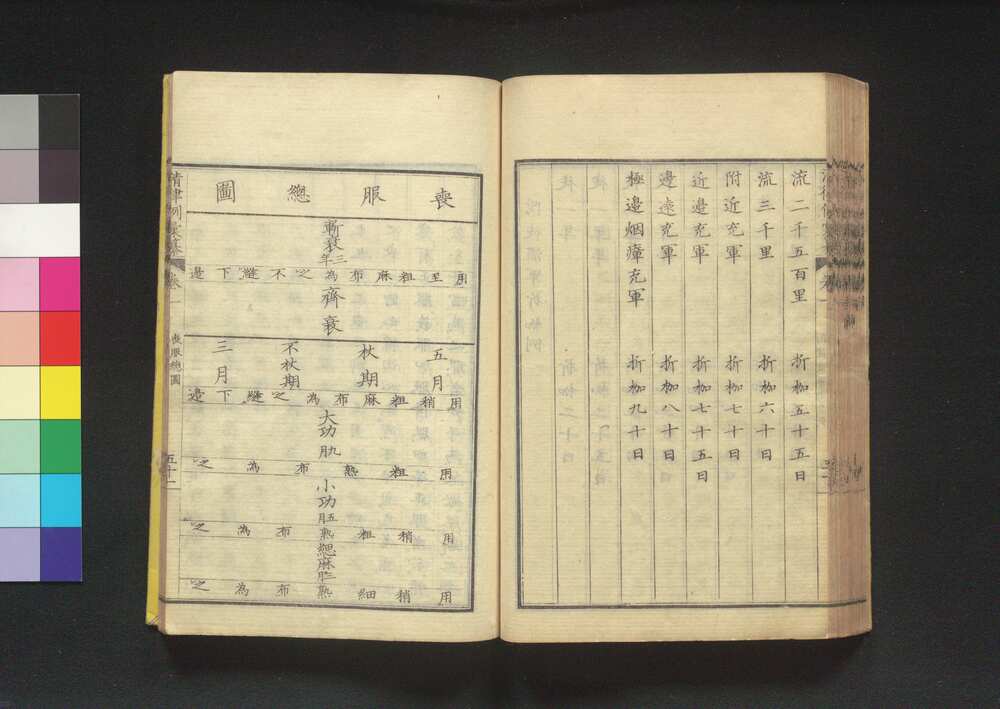 流二千五百里 折枷五十五日
流三千里 折枷六十日
附近充軍 折枷七十日
近邊充軍 折枷七十五日
邊遠充軍 折枷八十日
極邊烟瘴充軍 折枷九十日
喪服總圖
斬衰三年
用至粗麻布為之不縫下邊
齊衰
五月
杖期
不杖期
三月
用稍粗麻布為之縫下邊
大功九月
用粗熟布為之
小功五月
用稍粗熟布為之
緦麻三月
用稍細熟布為之
卷一
喪服總圖
五十一